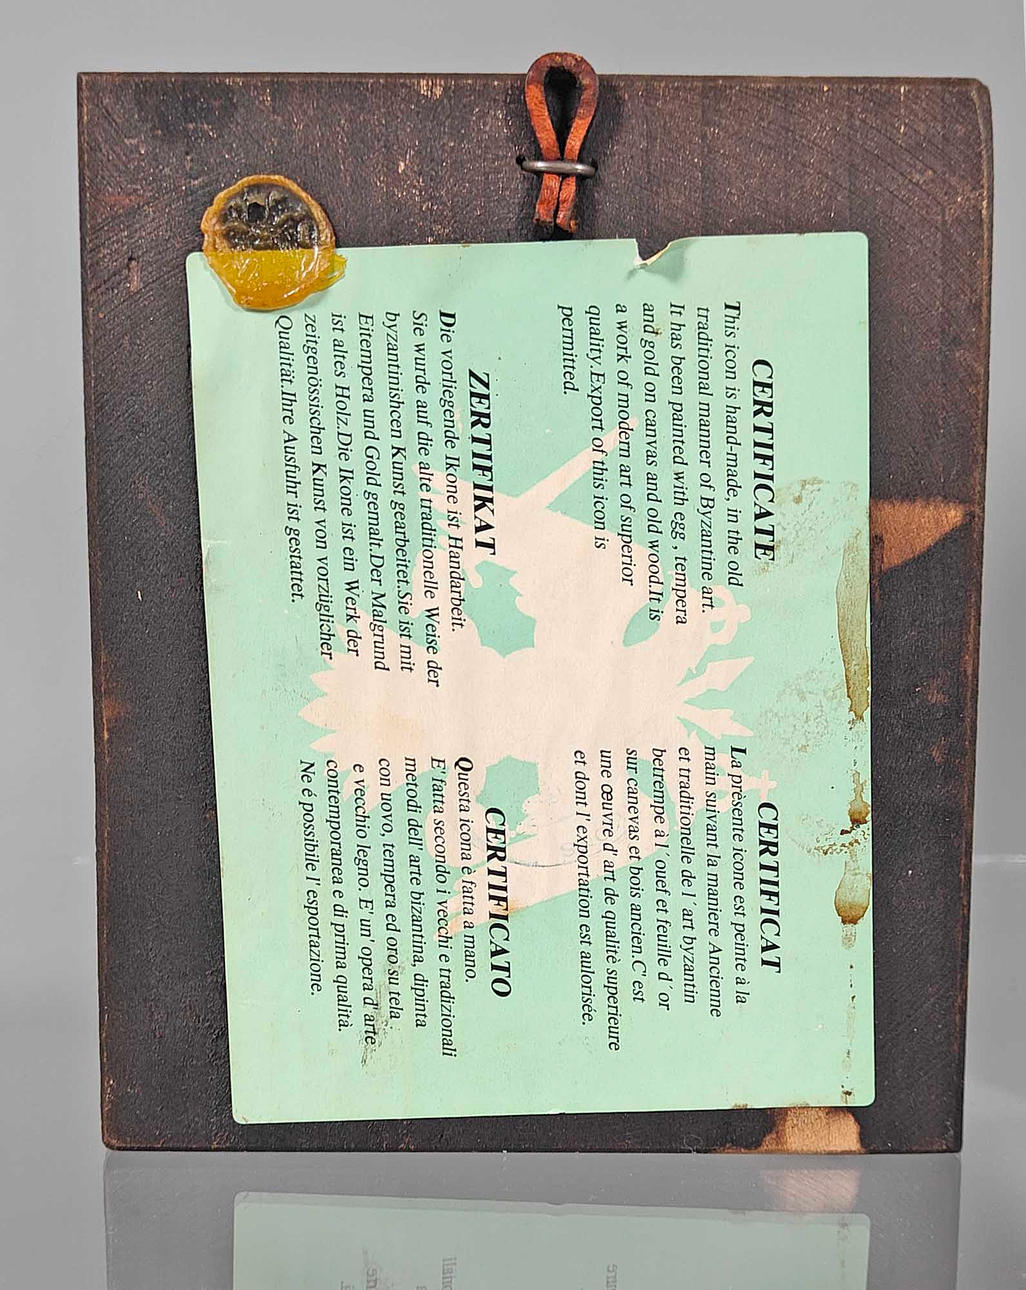 CERTIFICATE
This icon is hand-made, in the old
traditional manner of Byzantine art.
It has been painted with egg , tempera
and gold on canvas and old wood.It is
a work of modern art of superior
quality.Export of this icon is
permitted.
CERTIFICAT
La prèsente icone est peinte à la
main suivant la maniere Ancienne
et traditionelle de l ' art byzantin
betrempe à l 'ouef et feuille d ' or
sur canevas et bois ancien.C' est
une œuvre d' art de qualitè superieure
et dont l ' exportation est aulorisée.
ZERTIFIKAT
Die vorliegende Ikone ist Handarbeit.
Sie wurde auf die alte traditionelle Weise der
byzantinishcen Kunst gearbeitet.Sie ist mit
Eitempera und Gold gemalt.Der Malgrund
ist altes Holz.Die Ikone ist ein Werk der
zeitgenössischen Kunst von vorzüglicher
Qualität.Ihre Ausfuhr ist gestattet.
CERTIFICATO
Questa icona è fatta a mano.
E' fatta secondo i vecchi e tradizionali
metodi dell' arte bizantina, dipinta
con uovo, tempera ed oro su tela
e vecchio legno. E' un' opera d' arte
contemporanea e di prima qualità.
Ne é possibile l' esportazione.